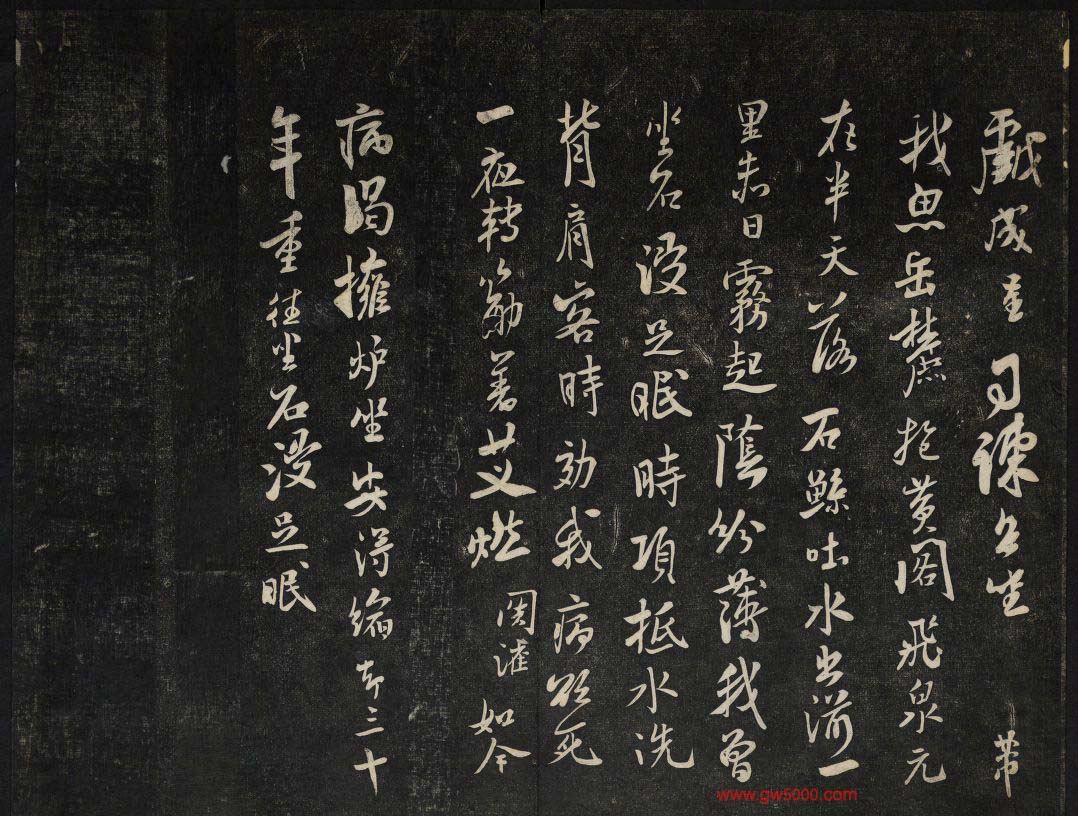 戲成呈 司諫台坐 芾
我思岳麓抱黄閣飛泉元
在半天落石鯨吐水出湔一
里赤日霧起蔭紛薄我曾
坐石浸足眠時項抵水洗
背肩客時効我病欲死
一夜轉筋著艾燃 関灌 如今
病渴擁炉坐安得縮却三十
年重往坐石浸足眠
www.gw5000.com